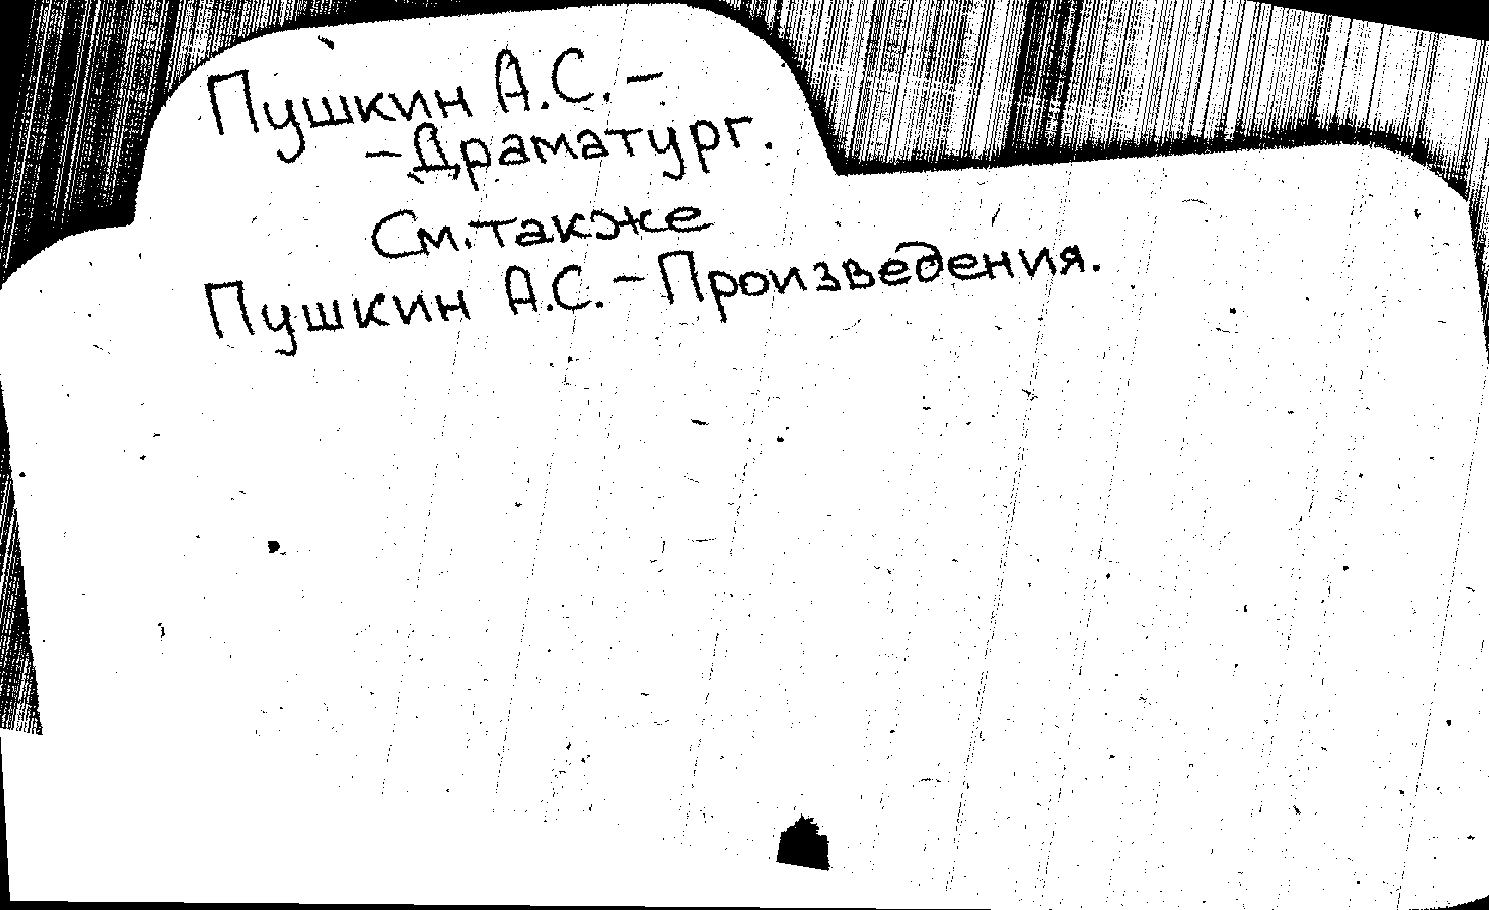 Пушкин А.С. –
– Драматург.
См. также
Пушкин А.С. – Произведения.